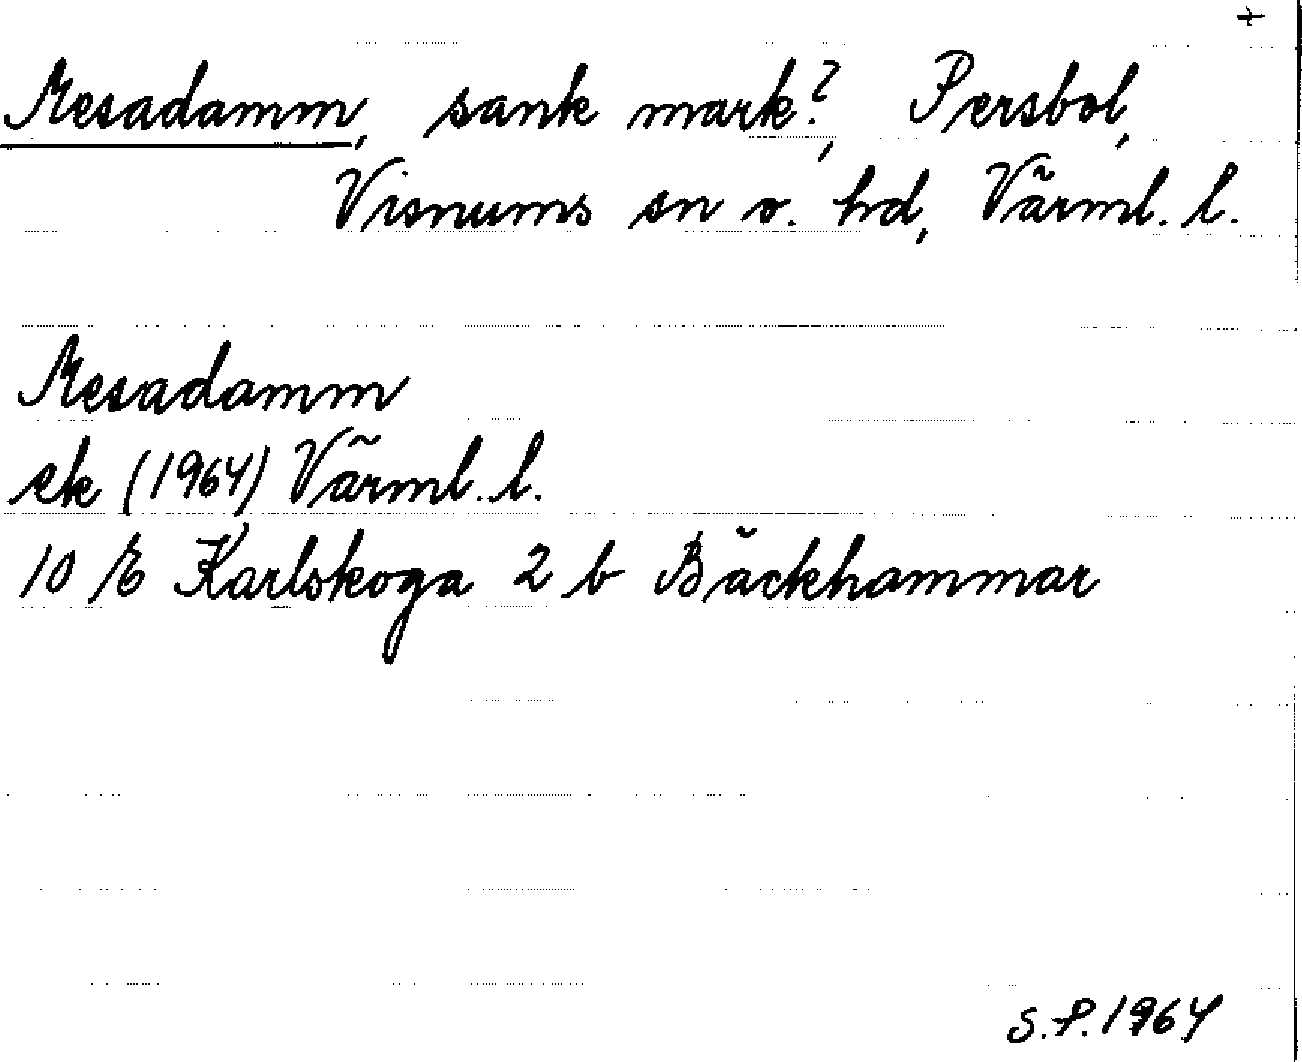 +
Mesadamm, sank mark?, Persbol,
Visnums sn o. hd, Värml. l.
Mesadamm
ek (1964) Värml. l.
10 E Karlskoga 2 b Bäckhammar
S.P. 1964